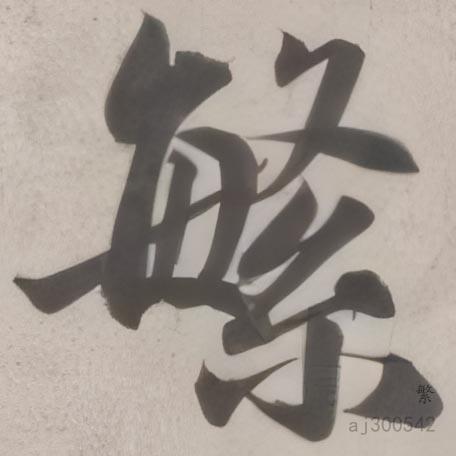 繁
繁
aj300542